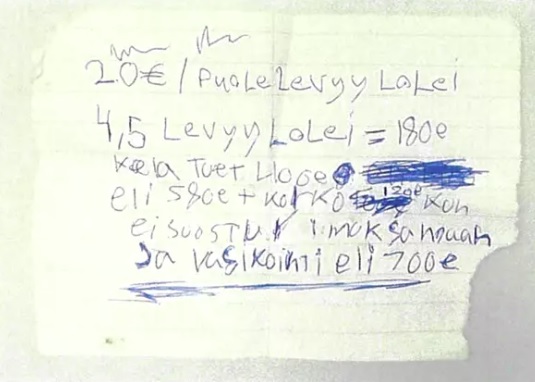 20€ / PUOLELEVYY LOLEI
4,5 LEVYY LOLEI = 180e
Kela TUET 400e
eli 580e + KorKo 120e Kun
ei SUOSTU maKsamaan
Ja vasiKointi eli 700e